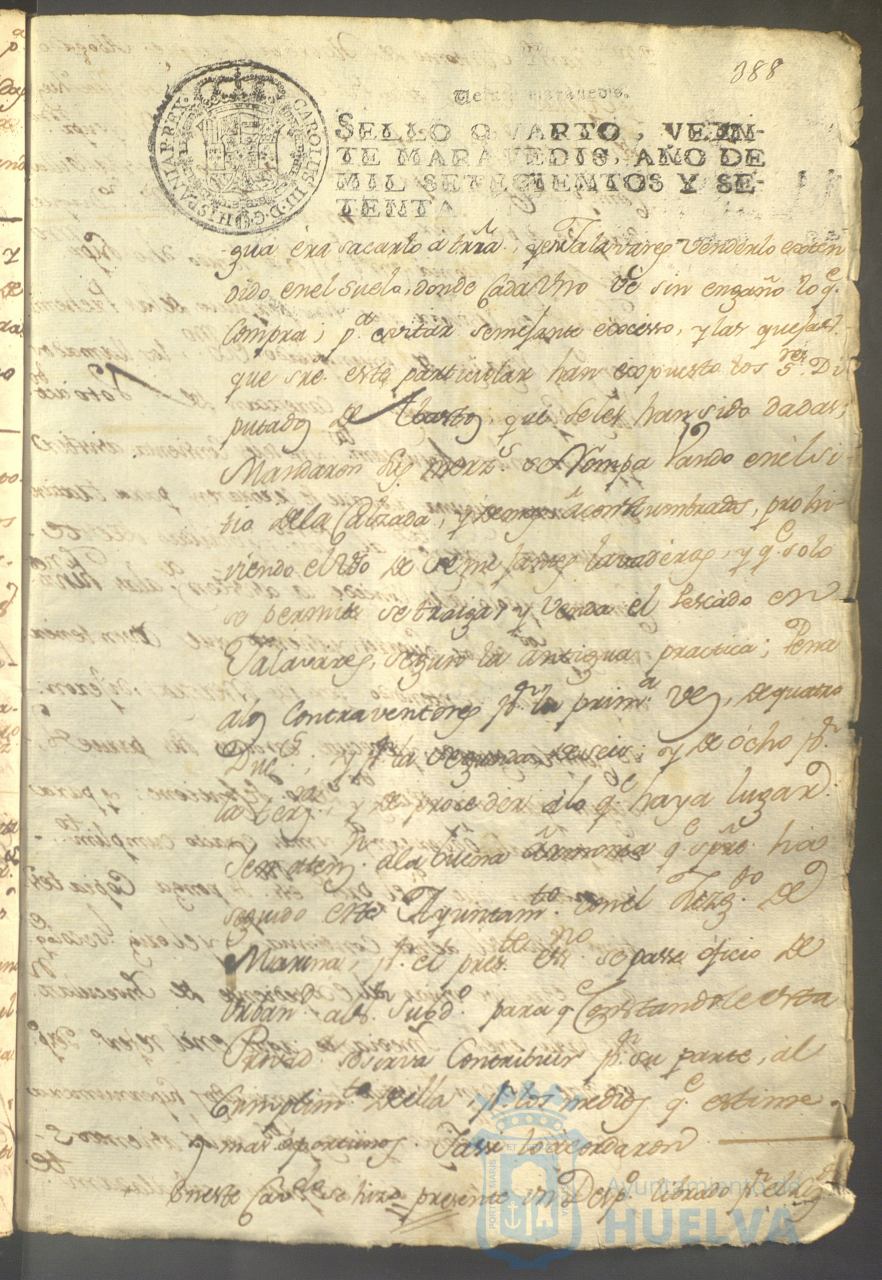 388
Veinte maravedis.
SELLO QVARTO, VEIN-
TE MARAVEDIS, AÑO DE
MIL SETECIENTOS Y SE-
TENTA.
CAROLUS III D G HISPANIAR REX
gua éra sacarlo a trrâ, y en Talavares venderlo exten
dido en el suelo, donde Cada Vno ve sin engaño lo q.e
Compra; p.a evitar semejante excesso, y las quejas
que sre. este particular han expuesto los S.res Di
putados de Abastos que seles han sido dadas;
Mandaron sus merz.s se Vando en él Si-
tio dela Calzada, y demas âcostumbrados, prohi-
viendo el Vso de semejantes lavaderos, y q.e solo
se permita se traiga, y venda el Pescado en
Talavares, segun la antigua practica; Pena
alos Contraventores p.r la prim.a vez, de quatro
Duc.s; y p.r la segunda de seis; y de ócho p.r
la terz.a; y de proceder álo q.e haya lugar.
Sem atenz.n ala buena ârmonia q.e spre. ha
seguido este Ayuntam.to con el Juzg.do de
Marina, p.r el pres.te ess.no se passe oficio de
Vrban. al S. Subd.o para q.e Constandole esta
Provid.a se sirva Contribuir p.r su parte, al
Cumplim.to de ella, p.r los medios q.e estime
mas oportunos. Y assi lo acordaron
En este Cav.do se hizo presente vn Desp.o librado p.r el
PORTUS MARIS ET
Ayuntamiento de
HUELVA